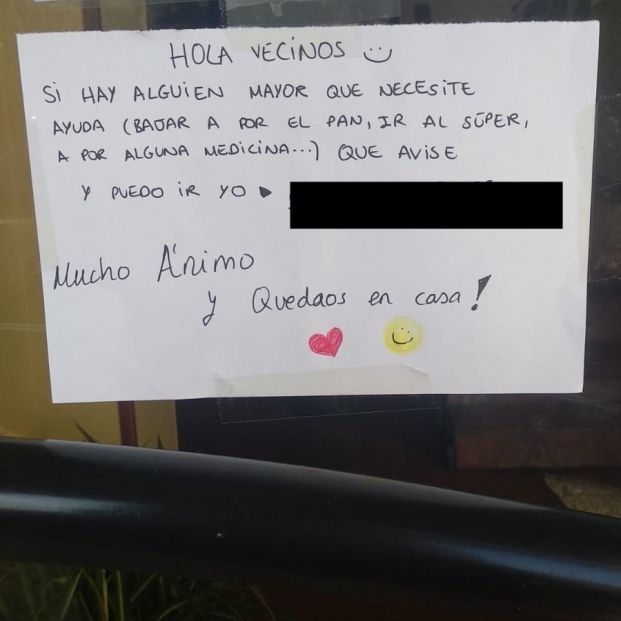 HOLA VECINOS
SI HAY ALGUIEN MAYOR QUE NECESITE
AYUDA (BAJAR A POR EL PAN, IR AL SÚPER,
A POR ALGUNA MEDICINA...) QUE AVISE
Y PUEDO IR YO
Mucho Ánimo
y Quedaos en casa!